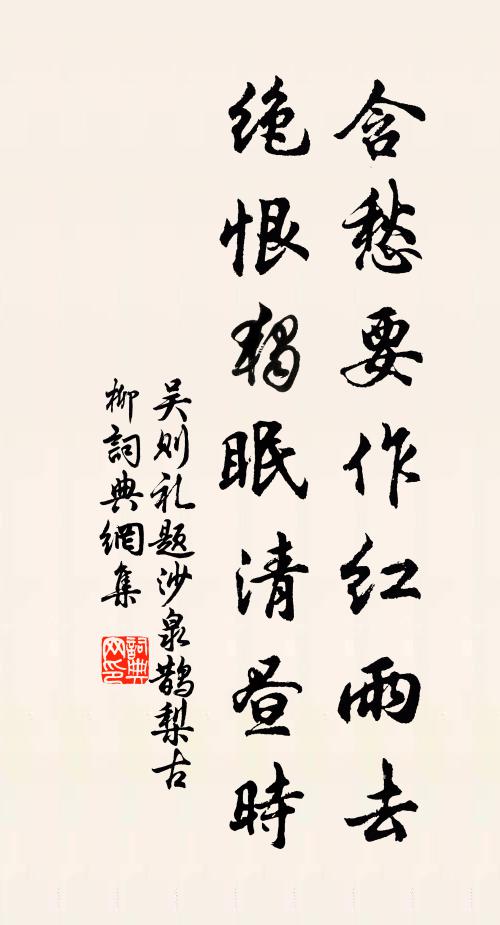 含愁要作红雨去
绝恨独眠清昼时
吴则礼题沙泉鹊梨古
柳詞典網集
詞典
网印